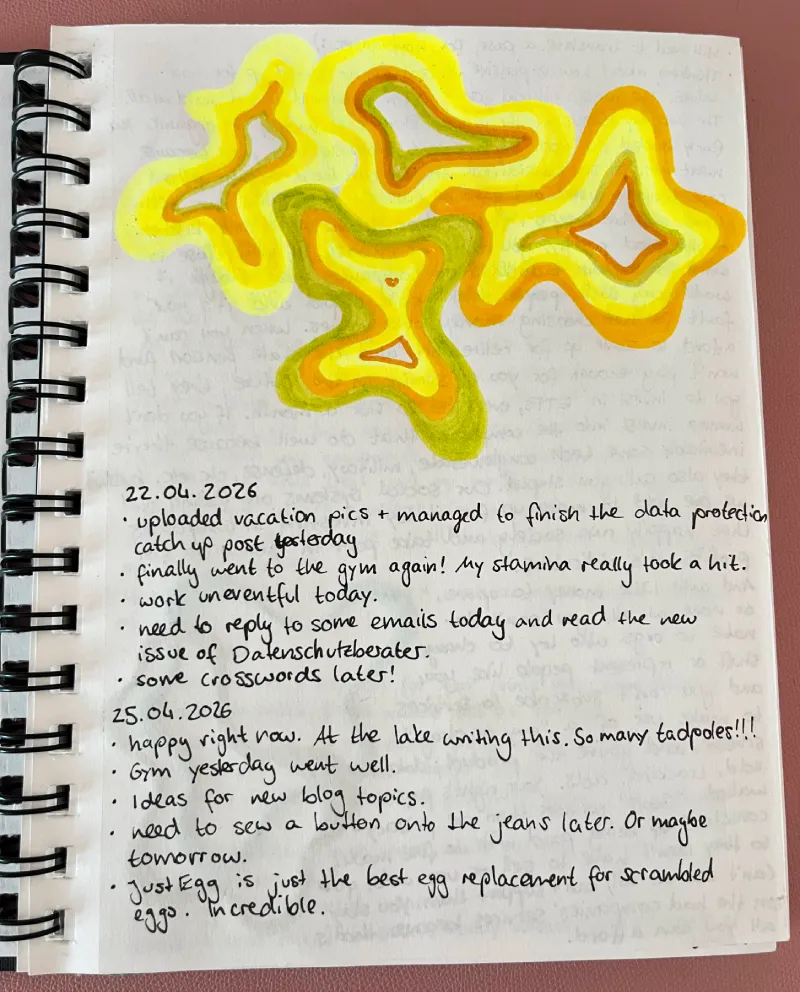 22.04.2026
· uploaded vacation pics + managed to finish the data protection
catch up post yesterday
· finally went to the gym again! My stamina really took a hit.
· work uneventful today.
· need to reply to some emails today and read the new
issue of Datenschutzberater.
· some crosswords later!
25.04.2026
· happy right now. At the lake writing this. So many tadpoles!!!
· Gym yesterday went well.
· Ideas for new blog topics.
· need to sew a button onto the jeans later. Or maybe
tomorrow.
· Just Egg is just the best egg replacement for scrambled
eggs. Incredible.